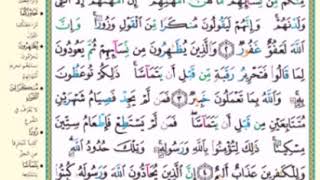 مِنكُم مِّن نِّسَآئِهِم مَّا هُنَّ أُمَّهَٰتِهِمْ إِنْ أُمَّهَٰتُهُمْ إِلَّا
وَلَدْنَهُمْ وَإِنَّهُمْ لَيَقُولُونَ مُنكَرًا مِّنَ ٱلْقَوْلِ وَزُورًا وَإِنَّ
ٱللَّهَ لَعَفُوٌّ غَفُورٌ ٢ وَٱلَّذِينَ يُظَٰهِرُونَ مِن نِّسَآئِهِمْ ثُمَّ يَعُودُونَ
لِمَا قَالُوا۟ فَتَحْرِيرُ رَقَبَةٍ مِّن قَبْلِ أَن يَتَمَآسَّا ذَٰلِكُمْ تُوعَظُونَ
بِهِۦ وَٱللَّهُ بِمَا تَعْمَلُونَ خَبِيرٌ ٣ فَمَن لَّمْ يَجِدْ فَصِيَامُ شَهْرَيْنِ
مُتَتَابِعَيْنِ مِن قَبْلِ أَن يَتَمَآسَّا فَمَن لَّمْ يَسْتَطِعْ فَإِطْعَامُ سِتِّينَ
مِسْكِينًا ذَٰلِكَ لِتُؤْمِنُوا۟ بِٱللَّهِ وَرَسُولِهِۦ وَتِلْكَ حُدُودُ ٱللَّهِ
وَلِلْكَٰفِرِينَ عَذَابٌ أَلِيمٌ ٤ إِنَّ ٱلَّذِينَ يُحَآدُّونَ ٱللَّهَ وَرَسُولَهُۥ كُبِتُوا۟